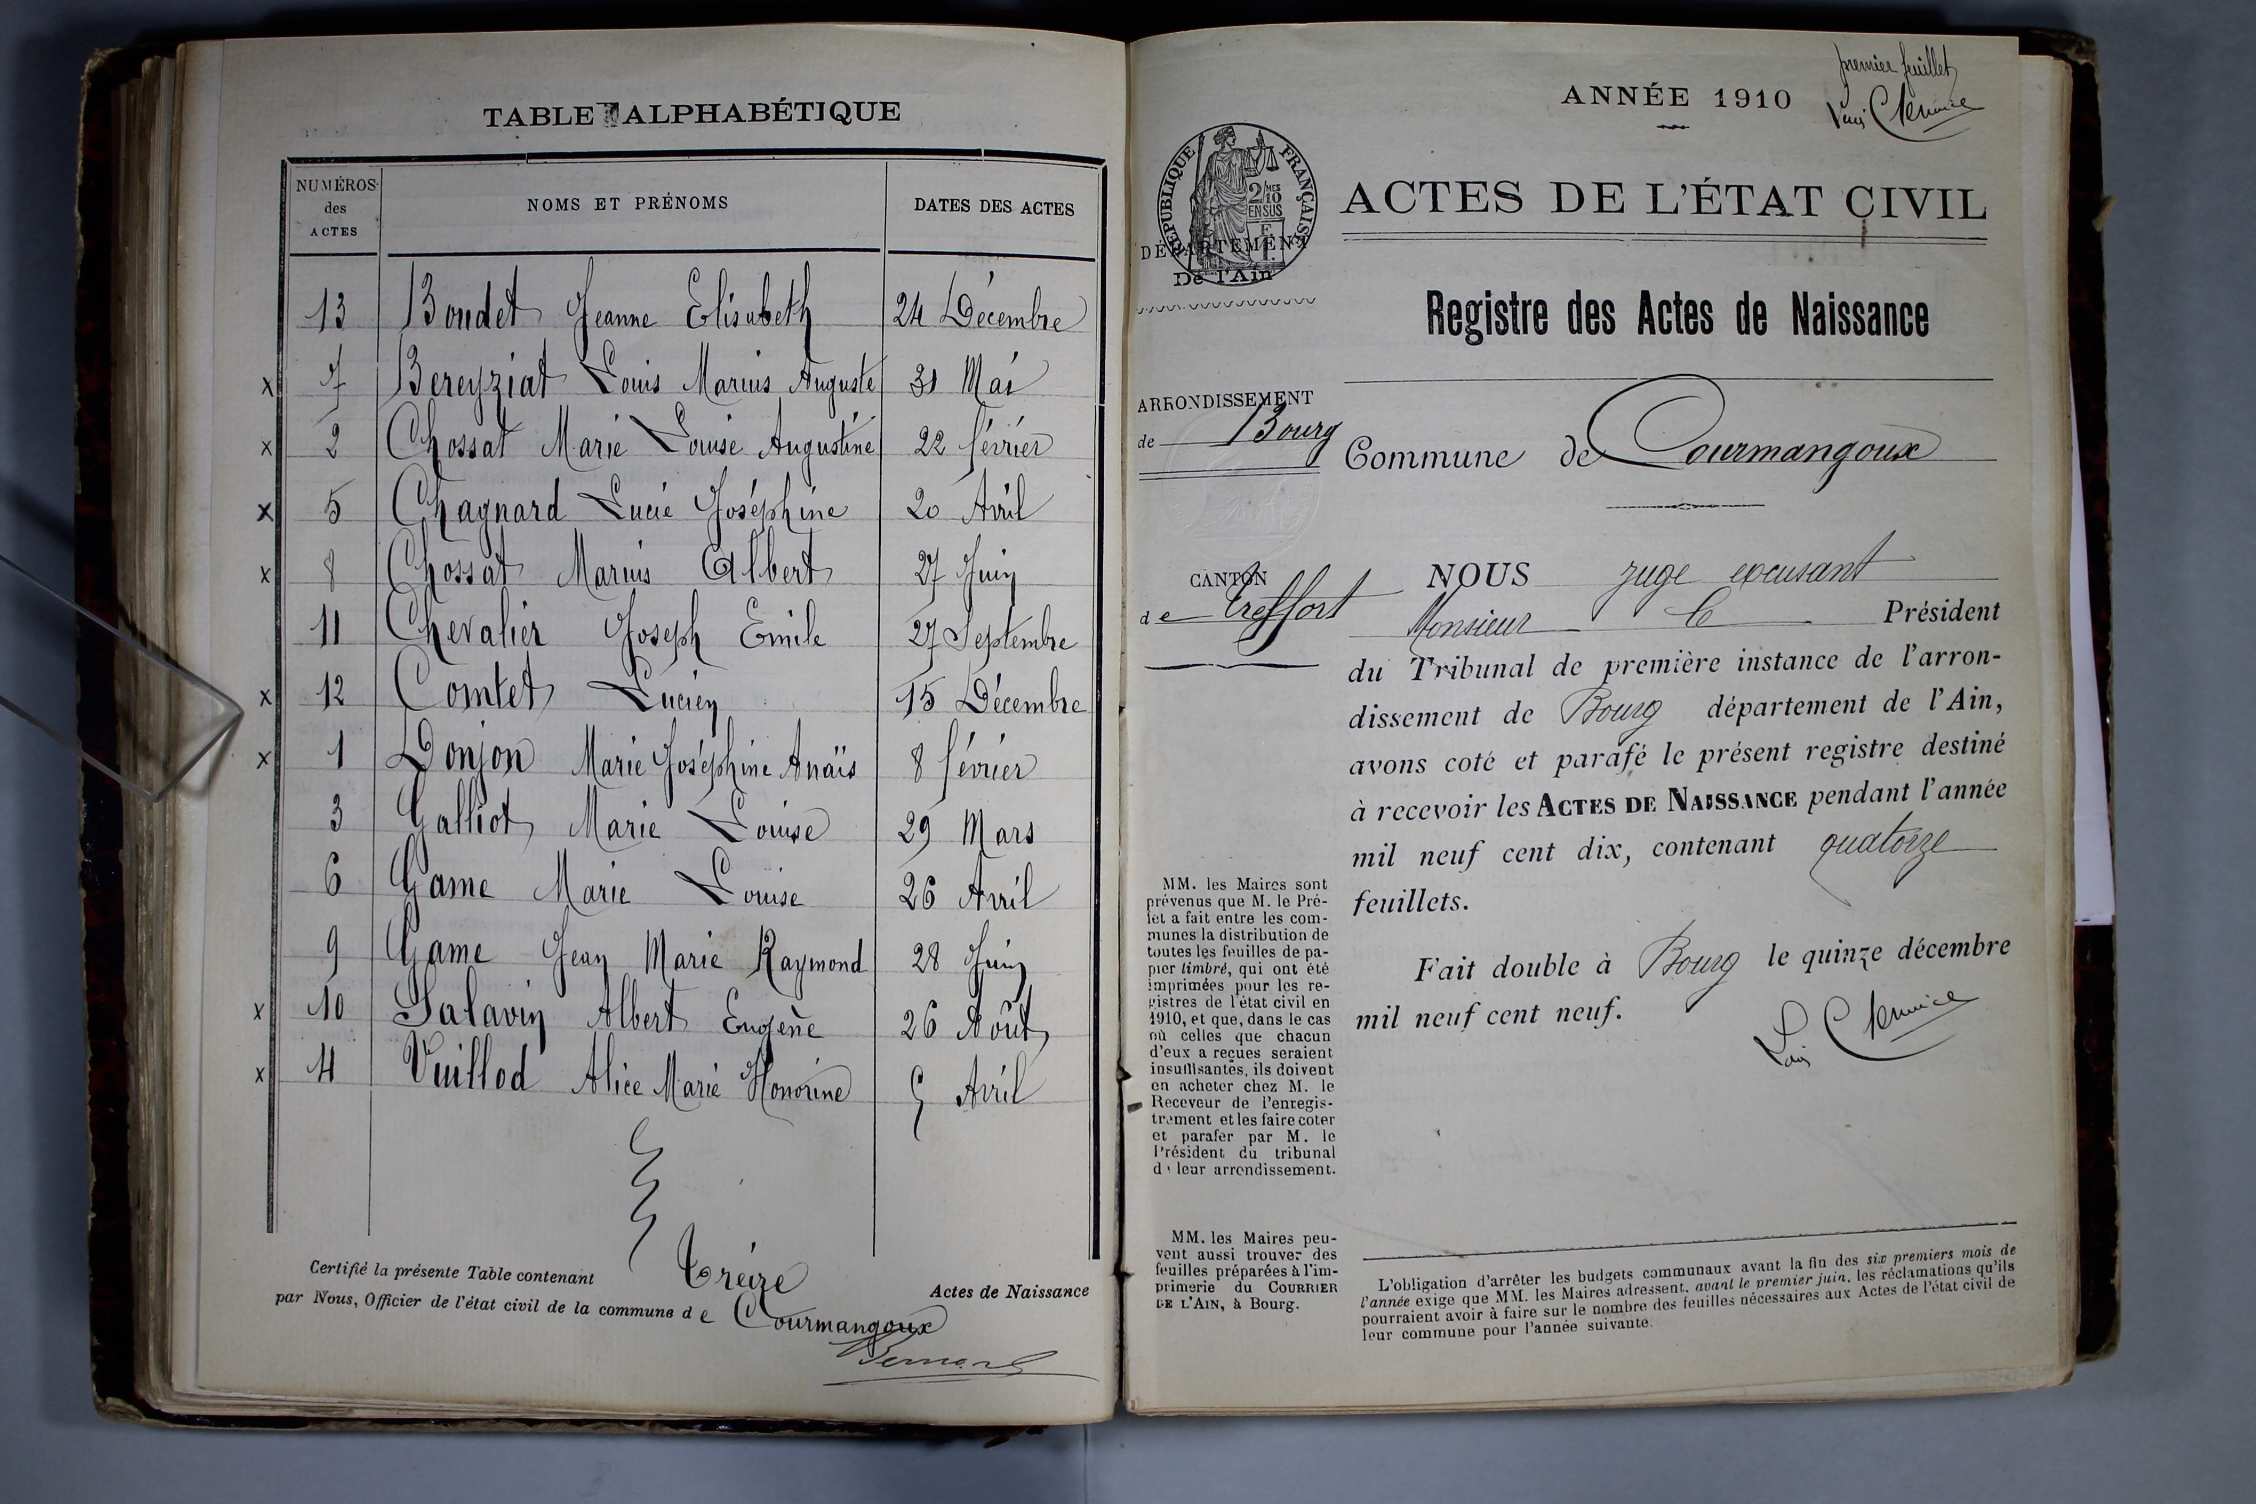 TABLE ALPHABÉTIQUE
NUMÉROS des ACTES | NOMS ET PRÉNOMS | DATES DES ACTES
13 Boudet Jeanne Elisabeth 24 Décembre
x 7 Bereyziat Louis Marius Auguste 31 Mai
x 2 Chossat Marie Louise Augustine 22 février
x 5 Chagnard Lucie Joséphine 20 Avril
x 8 Chossat Marius Albert 27 Juin
11 Chevalier Joseph Emile 27 Septembre
x 12 Comtet Lucien 15 Décembre
x 1 Donjon Marie Joséphine Anaïs 8 février
3 Galliot Marie Louise 29 Mars
6 Game Marie Louise 26 Avril
9 Game Jean Marie Raymond 28 Juin
x 10 Salavin Albert Eugène 26 Août
x 4 Vuillod Alice Marie Honorine 5 Avril
Certifié la présente Table contenant Treize Actes de Naissance
par Nous, Officier de l'état civil de la commune de Courmangoux
Bernard
premier feuillet
ANNÉE 1910
RÉPUBLIQUE FRANÇAISE
2/10 MES
EN SUS
DÉPARTEMENT
De l'Ain
ACTES DE L'ÉTAT CIVIL
Registre des Actes de Naissance
ARRONDISSEMENT
de Bourg
Commune de Courmangoux
CANTON
de Treffort
NOUS juge excusant
Monsieur le Président
du Tribunal de première instance de l'arron-
dissement de Bourg département de l'Ain,
avons coté et parafé le présent registre destiné
à recevoir les ACTES DE NAISSANCE pendant l'année
mil neuf cent dix, contenant quatorze
feuillets.
Fait double à Bourg le quinze décembre
mil neuf cent neuf.
MM. les Maires sont
prévenus que M. le Pré-
fet a fait entre les com-
munes la distribution de
toutes les feuilles de pa-
pier timbré, qui ont été
imprimées pour les re-
gistres de l'état civil en
1910, et que, dans le cas
où celles que chacun
d'eux a reçues seraient
insuffisantes, ils doivent
en acheter chez M. le
Receveur de l'enregis-
trement et les faire coter
et parafer par M. le
Président du tribunal
de leur arrondissement.
MM. les Maires peu-
vent aussi trouver des
feuilles préparées à l'im-
primerie du COURRIER
DE L'AIN, à Bourg.
L'obligation d'arrêter les budgets communaux avant la fin des six premiers mois de
l'année exige que MM. les Maires adressent, avant le premier juin, les réclamations qu'ils
pourraient avoir à faire sur le nombre des feuilles nécessaires aux Actes de l'état civil de
leur commune pour l'année suivante.